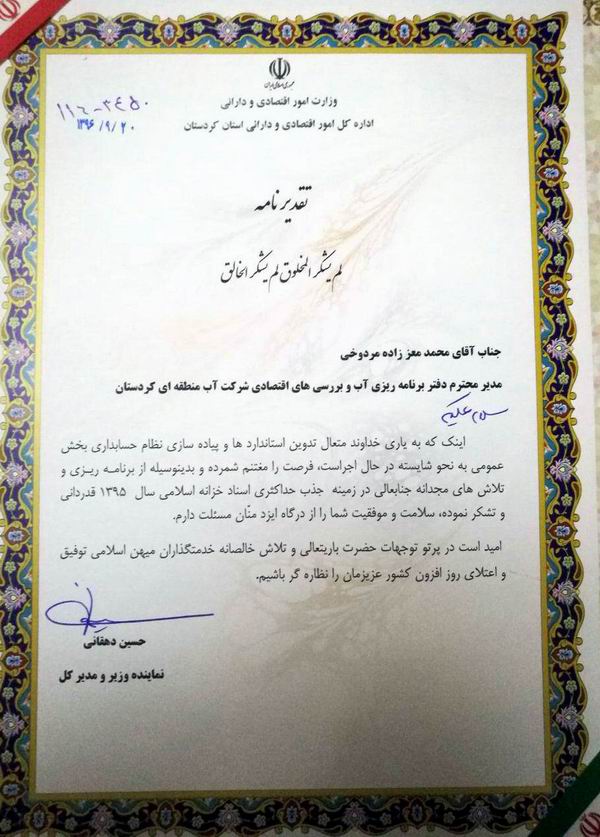 جمهوری اسلامی ایران
وزارت امور اقتصادی و دارائی
اداره کل امور اقتصادی و دارائی استان کردستان
۱۱۶-۳۴۵۰
۱۳۹۶/۹/۲۰
تقدیر نامه
لم یشکر المخلوق لم یشکر الخالق
جناب آقای محمد معز زاده مردوخی
مدیر محترم دفتر برنامه ریزی آب و بررسی های اقتصادی شرکت آب منطقه ای کردستان
سلام علیکم
اینک که به یاری خداوند متعال تدوین استاندارد ها و پیاده سازی نظام حسابداری بخش
عمومی به نحو شایسته در حال اجراست، فرصت را مغتنم شمرده و بدینوسیله از برنامه ریزی و
تلاش های مجدانه جنابعالی در زمینه جذب حداکثری اسناد خزانه اسلامی سال ۱۳۹۵ قدردانی
و تشکر نموده، سلامت و موفقیت شما را از درگاه ایزد منّان مسئلت دارم.
امید است در پرتو توجهات حضرت باریتعالی و تلاش خالصانه خدمتگذاران میهن اسلامی توفیق
و اعتلای روز افزون کشور عزیزمان را نظاره گر باشیم.
حسین دهقانی
نماینده وزیر و مدیر کل